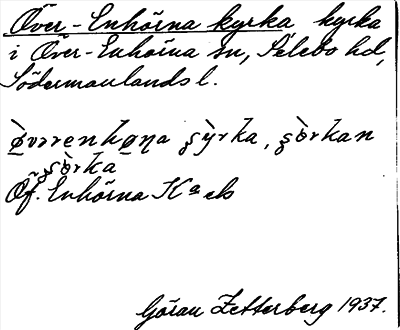 Över-Enhörna kyrka kyrka
i Över-Enhörna sn, Selebo hd,
Södermanlands l.
ø̀vərenhø̱ɳa ʂỳrka, ʂørkan
ʂørka
Öf. Enhörna Ka els
Göran Zetterberg 1937.